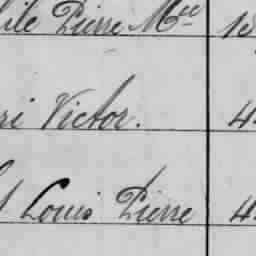 ile Pierre M
ri Victor. 4
Louis Pierre 4